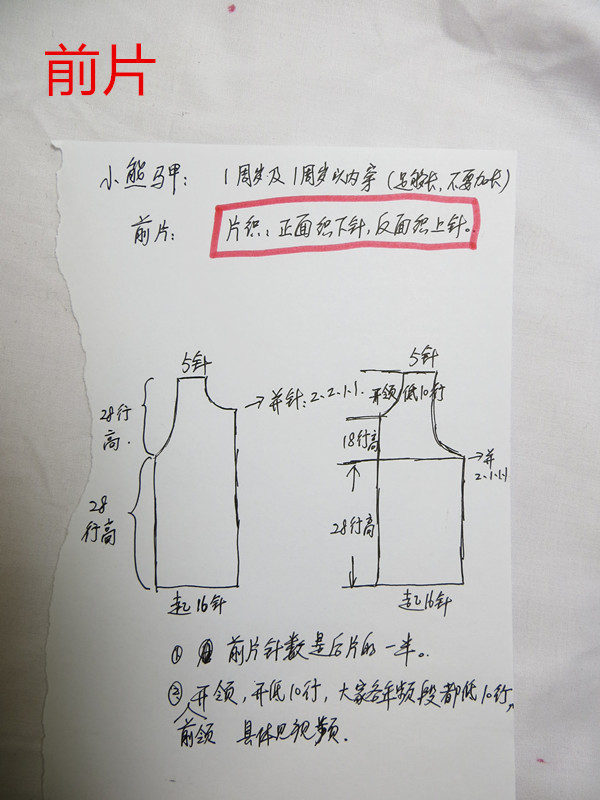 前片
小熊马甲： 1周岁及1周岁以内穿（足够长，不要加长）
前片： 片织：正面织下针，反面织上针。
5针 5针
28行高. →并针：2.2.1.1. 开领低10行
18行高
→并2.1.1.1
28行高 28行高
起16针 起16针
① 前片针数是后片的一半。
② 开领，开低10行，大家各年龄段都低10行，
前领 具体见视频.